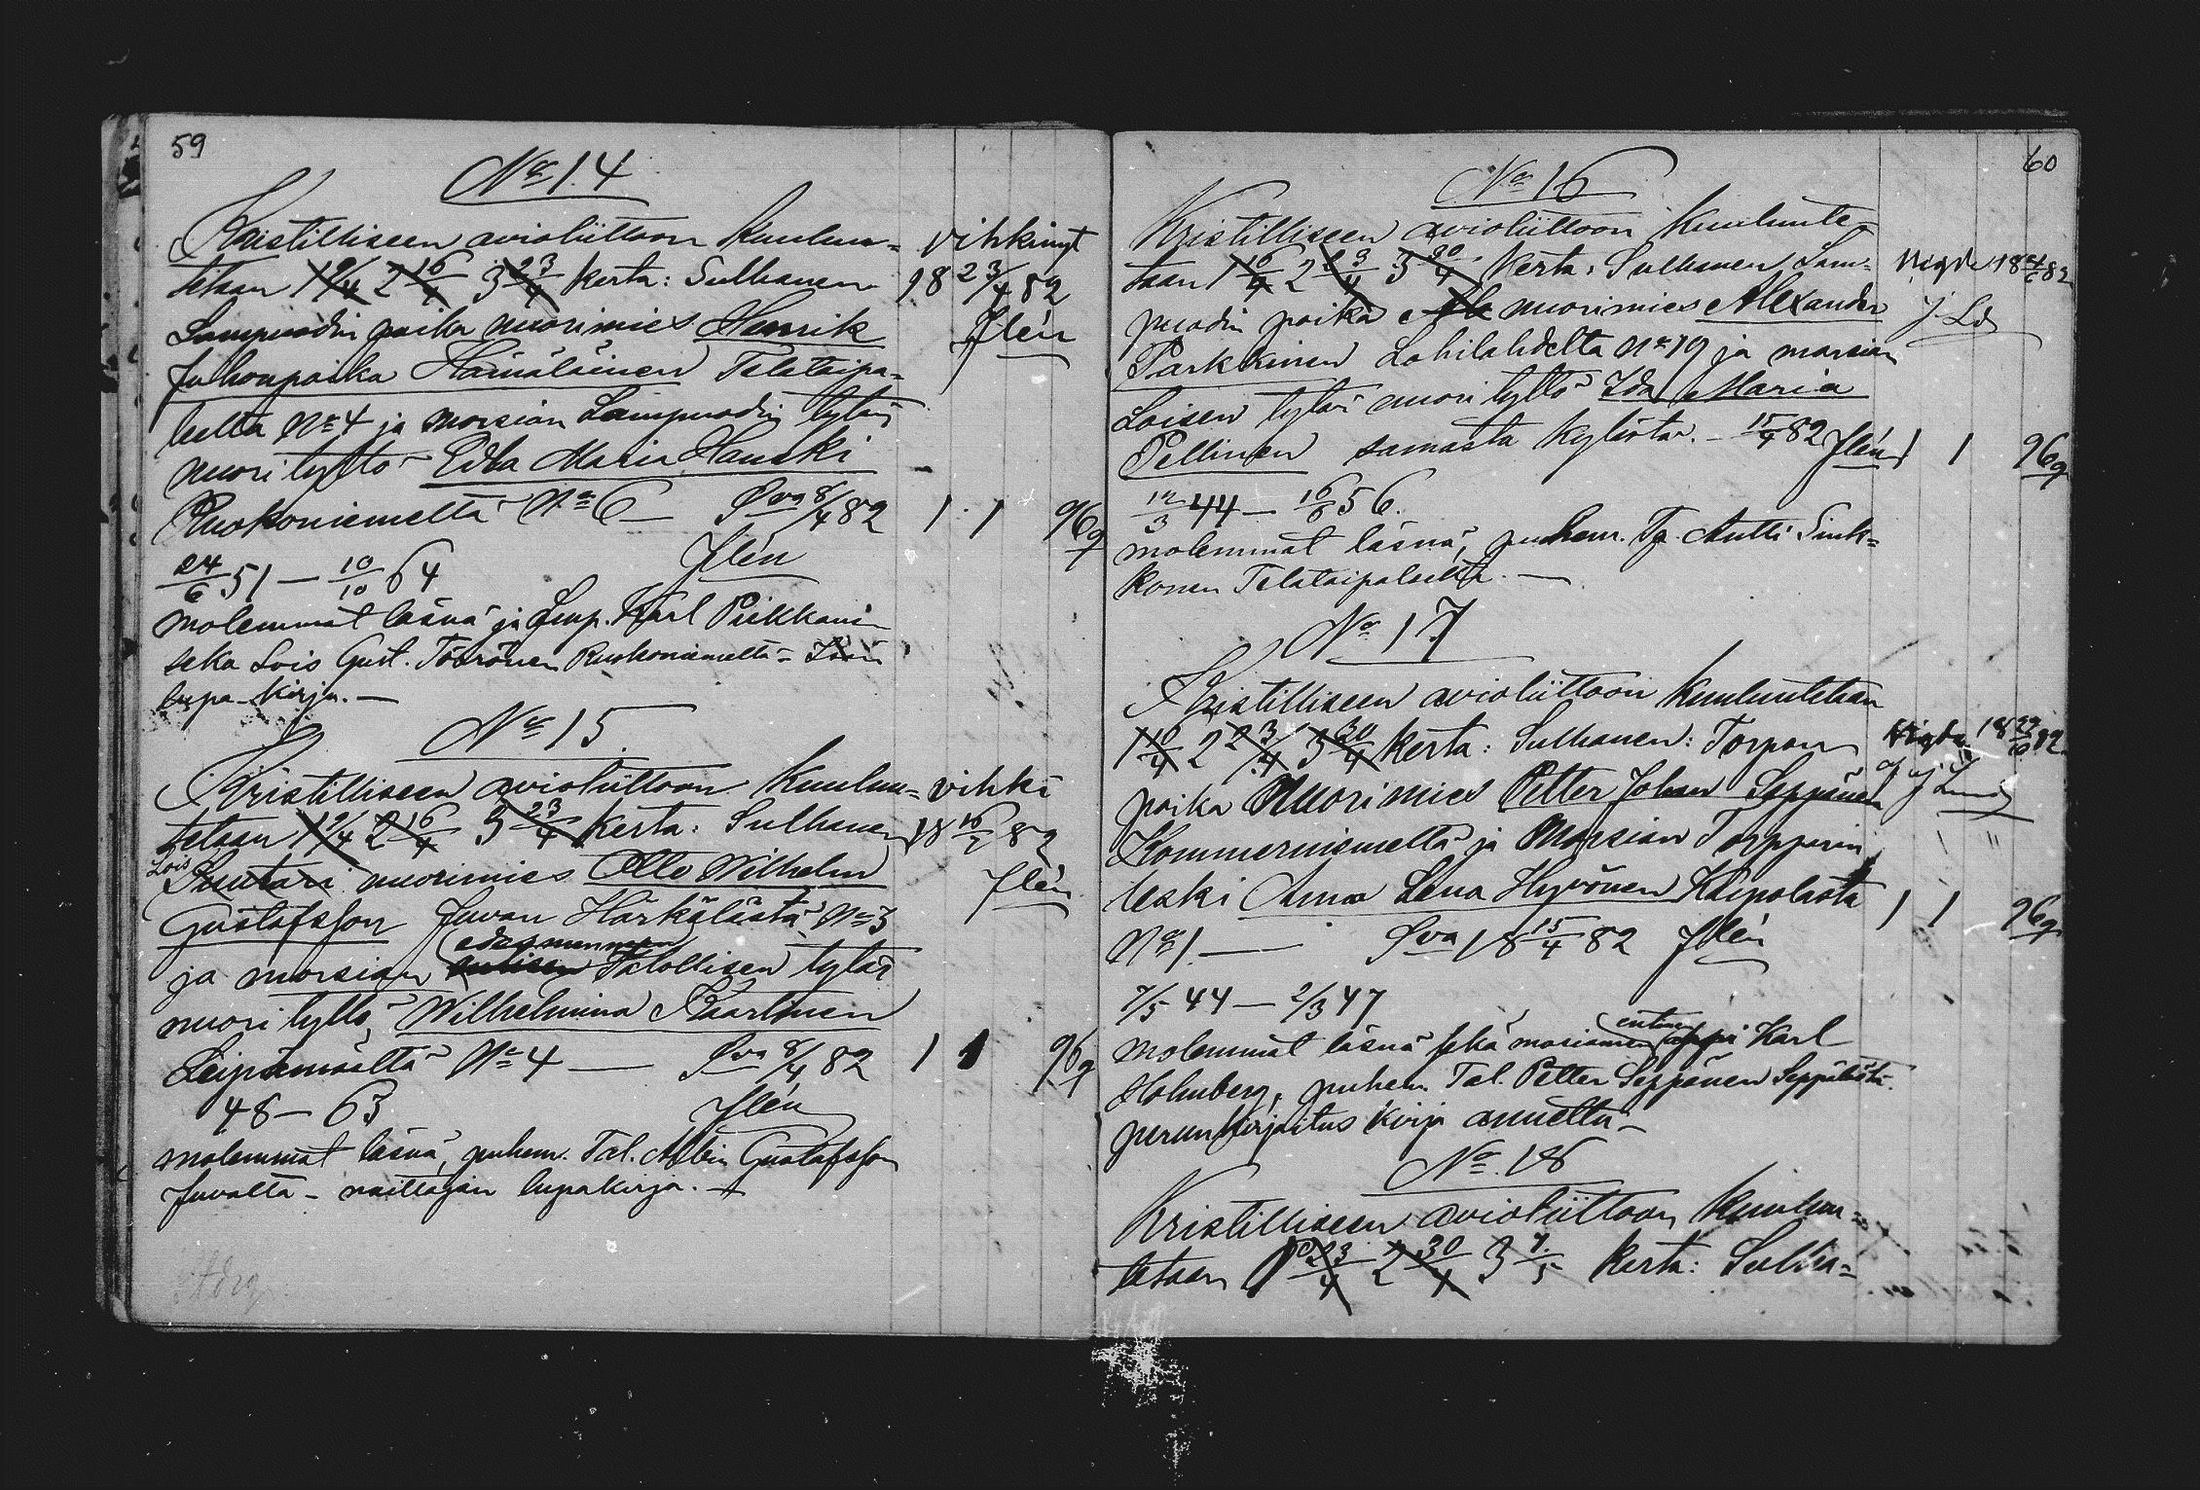 59
No 14
Kristilliseen avioliittoon kuulu-
tetaan 1 9/4 2 16/4 3 23/4 kerta: Sulhanen
Lampuodin poika nuorimies Henrik
Juhonpoika Hämäläinen Telataipa-
leelta No 4 ja morsian Lampuodin tytär
nuori tyttö Edla Maria Hauski
Ruokoniemeltä No 6 — Sva 8/4 82
Jlén
24/6 51 — 10/10 64
molemmat läsnä ja Lmp. Karl Pirkkani-
seka Lois Gust. Töörönen Ruokoniemeltä -
lupa-kirja. —
vihkinyt
18 23/4 82
Jlén
1 1 96 q
No 15
Kristilliseen avioliittoon kuulu-
tetaan 1 9/4 2 16/4 3 23/4 kerta: Sulhanen
Lois
Suutari nuorimies Otto Wilhelm
Gustafsson Juvan Härkälästä No 3
edesmenneen
ja morsian Talollisen tytär
nuori tyttö Wilhelmina Kaartinen
Leipämäeltä No 4 — Sva 8/4 82
Jlén
48 — 63
molemmat läsnä, puhem. Tal. Albin Gustafsson
Juvalta - naittajan lupakirja. —
vihki
18 16/7 82
Jlén
1 1 96 q
60
No 16
Kristilliseen avioliittoon kuulute-
taan 1 16/4 2 23/4 3 30/4 kerta: Sulhanen Lam-
puodin poika nuorimies Alexander
Parkkinen Lohilahdelta No 19 ja morsian
Loisen tytär nuori tyttö Ida Maria
Pellinen samasta kylästä. — 15/4 82 Jlén
12/3 44 — 16/8 56.
molemmat läsnä, puhem. Tp. Antti Sink-
konen Telataipaleelta. —
Vigde
1 1 96 q
No 17
Kristilliseen avioliittoon kuulutetaan
1 16/4 2 23/4 3 30/4 kerta: Sulhanen: Torpan
poika Nuorimies Petter Johan Seppänen
Kommerniemeltä ja Morsian Torpparin
leski Anna Lena Hyvönen Kaipolasta
No 1. — Sva 18 15/4 82 Jlén
7/5 44 — 2/3 47
entinen
molemmat läsnä sekä morsiamen appi Karl
Holmberg, puhem. Tal. Petter Seppänen Seppälästä.
perunkirjoitus kirja annettu —
Vigde
1 1 96 q
No 18
Kristilliseen avioliittoon kuulu-
tetaan 1 23/4 2 30/4 3 7/5 kerta: Sulha-